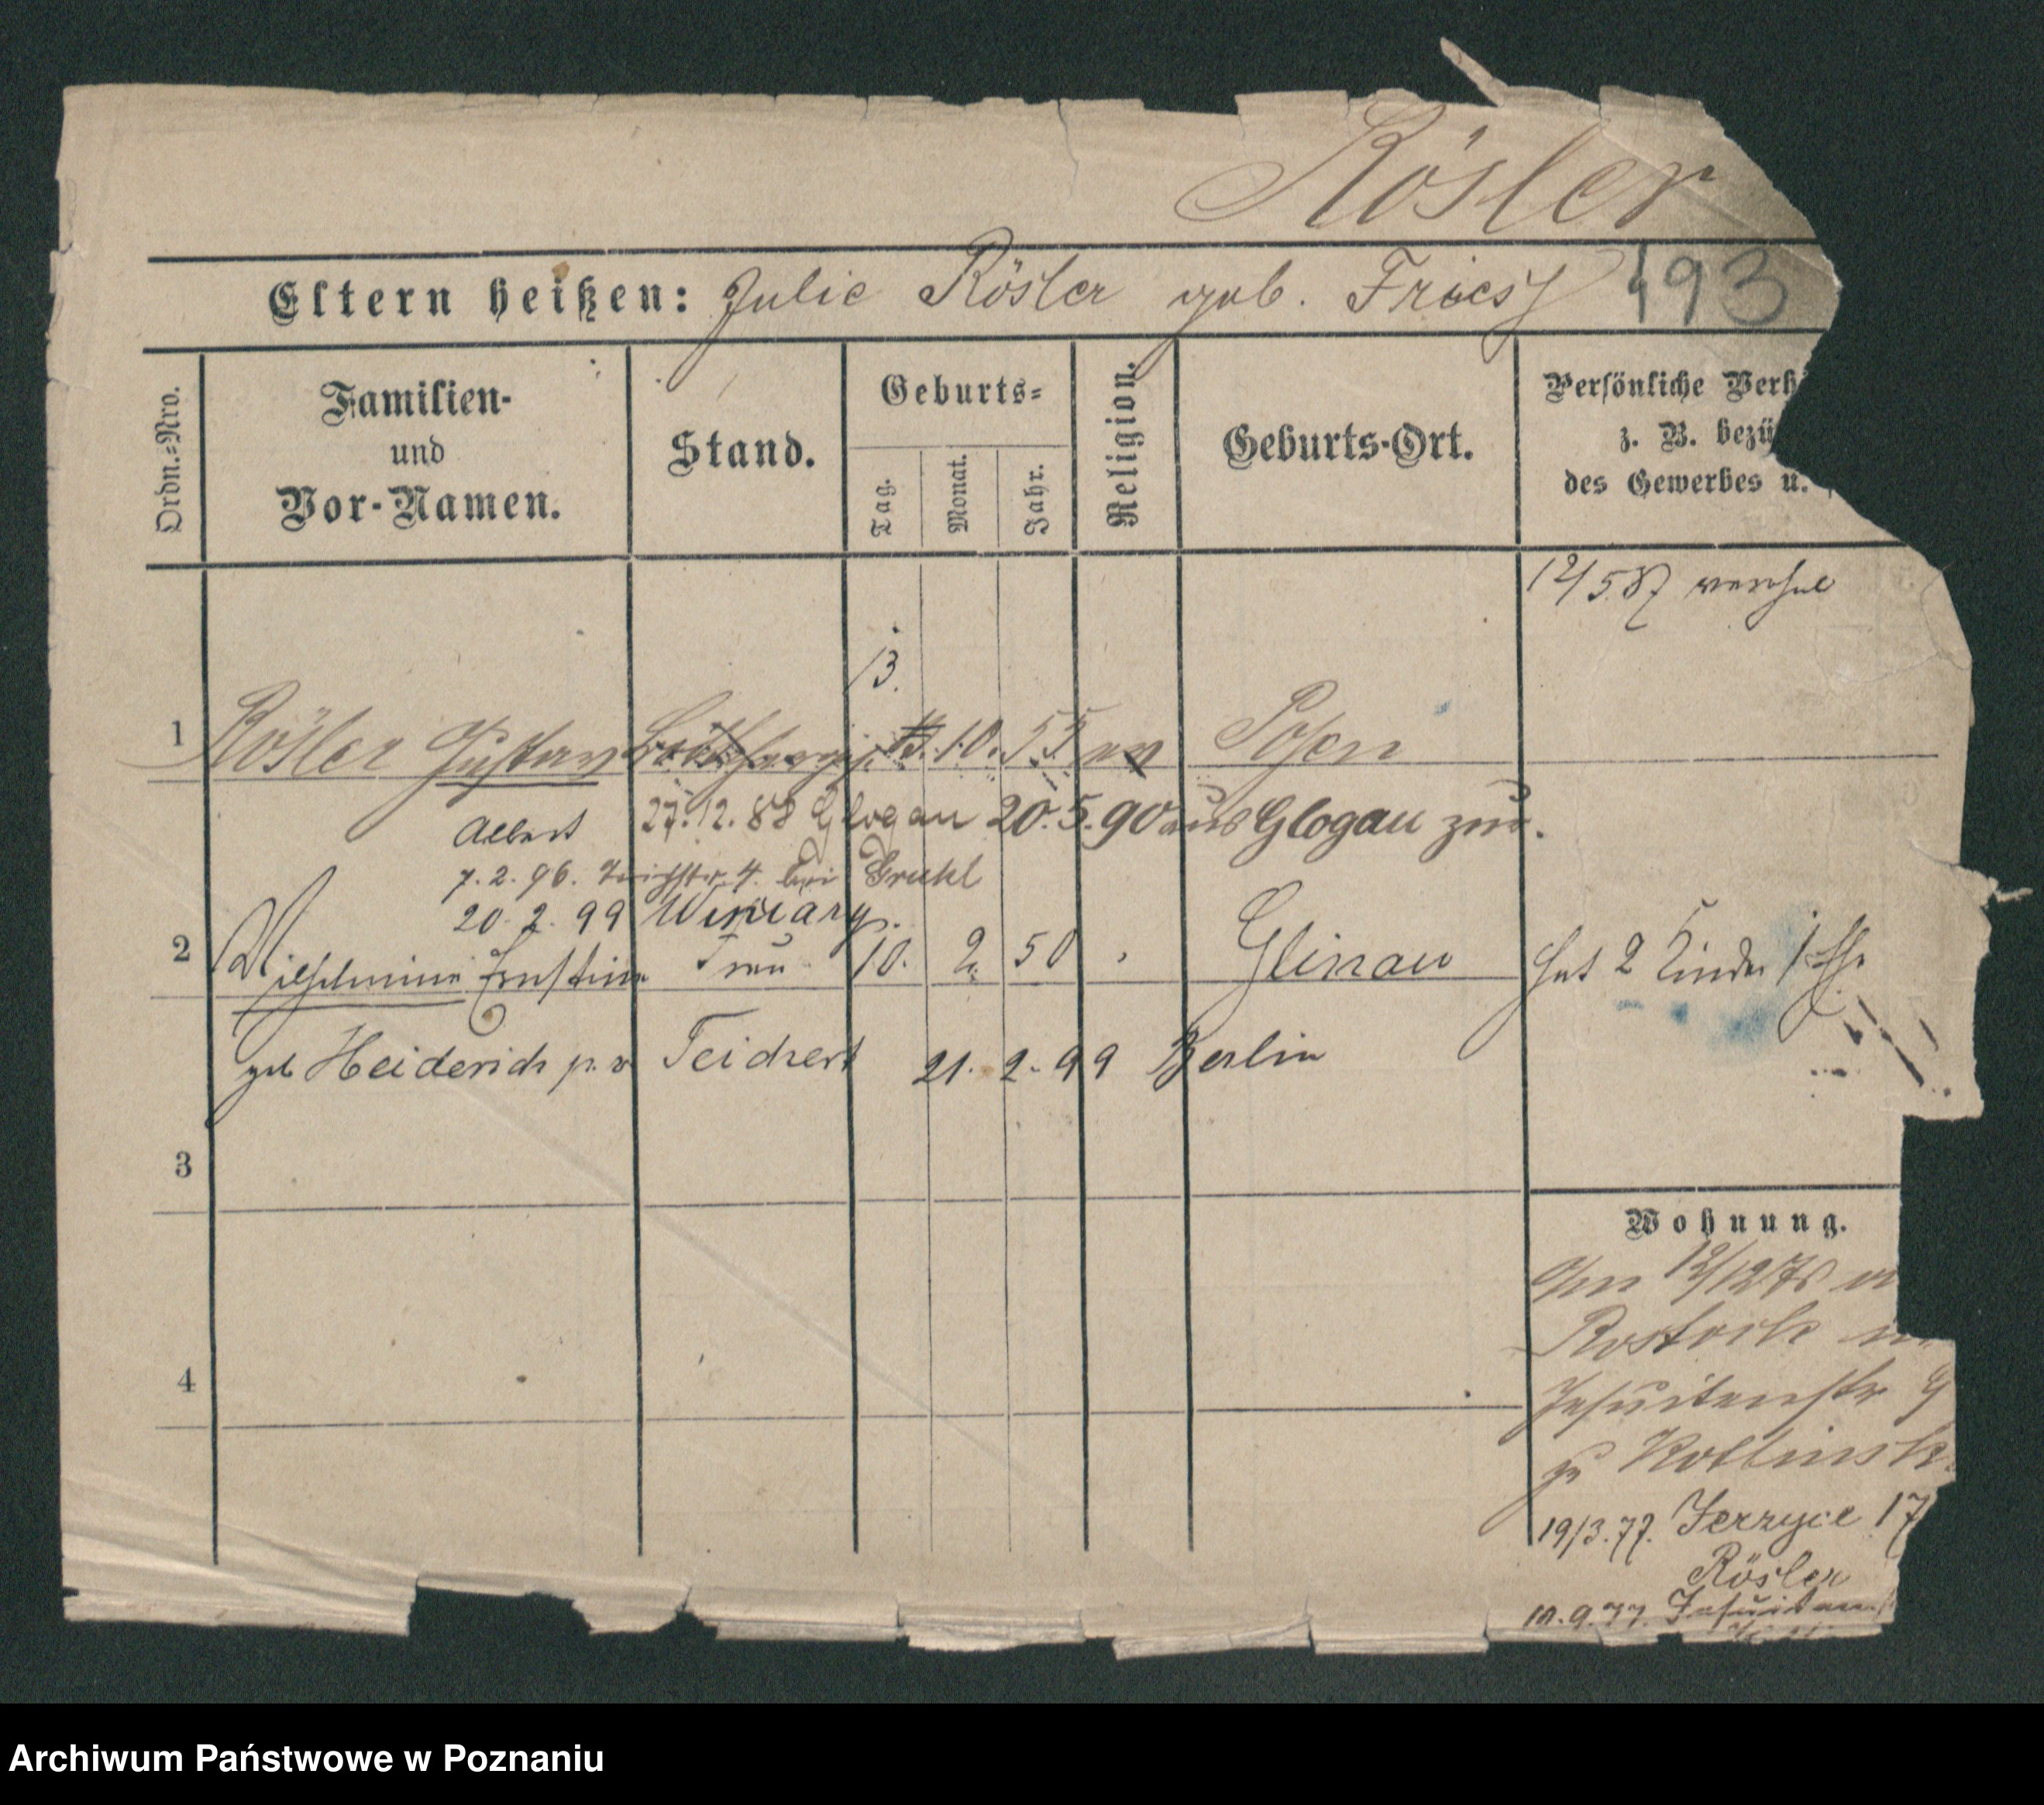 Rösler
Eltern heißen: Julie Rösler geb. Friesy 493
Ordn.=Nro.
Familien-
und
Vor-Namen.
Stand.
Geburts=
Tag.
Monat.
Jahr.
Religion.
Geburts-Ort.
Persönliche Verh
z. B. bezü
des Gewerbes u.
12/5.87
13.
1 Rösler Gustav 10. 55 Posen
Albert 27.12.88 Glogau 20.5.90 aus Glogau zur.
7.2.96. 4. bei Gruhl
20.2.99 Winiary
2 Wilhelmine Ernstine Frau 10. 2. 50 Glinau hat 2 Kinder 1 Ehe
geb Heiderich p. v Teichert 21.2.99 Berlin
3
4
Wohnung.
Am 12/12 76
Rostock
Jesuitenstr 9
zu
19/3.77. Jerzyce 17
Rösler
9.77. Jesuiten
Archiwum Państwowe w Poznaniu